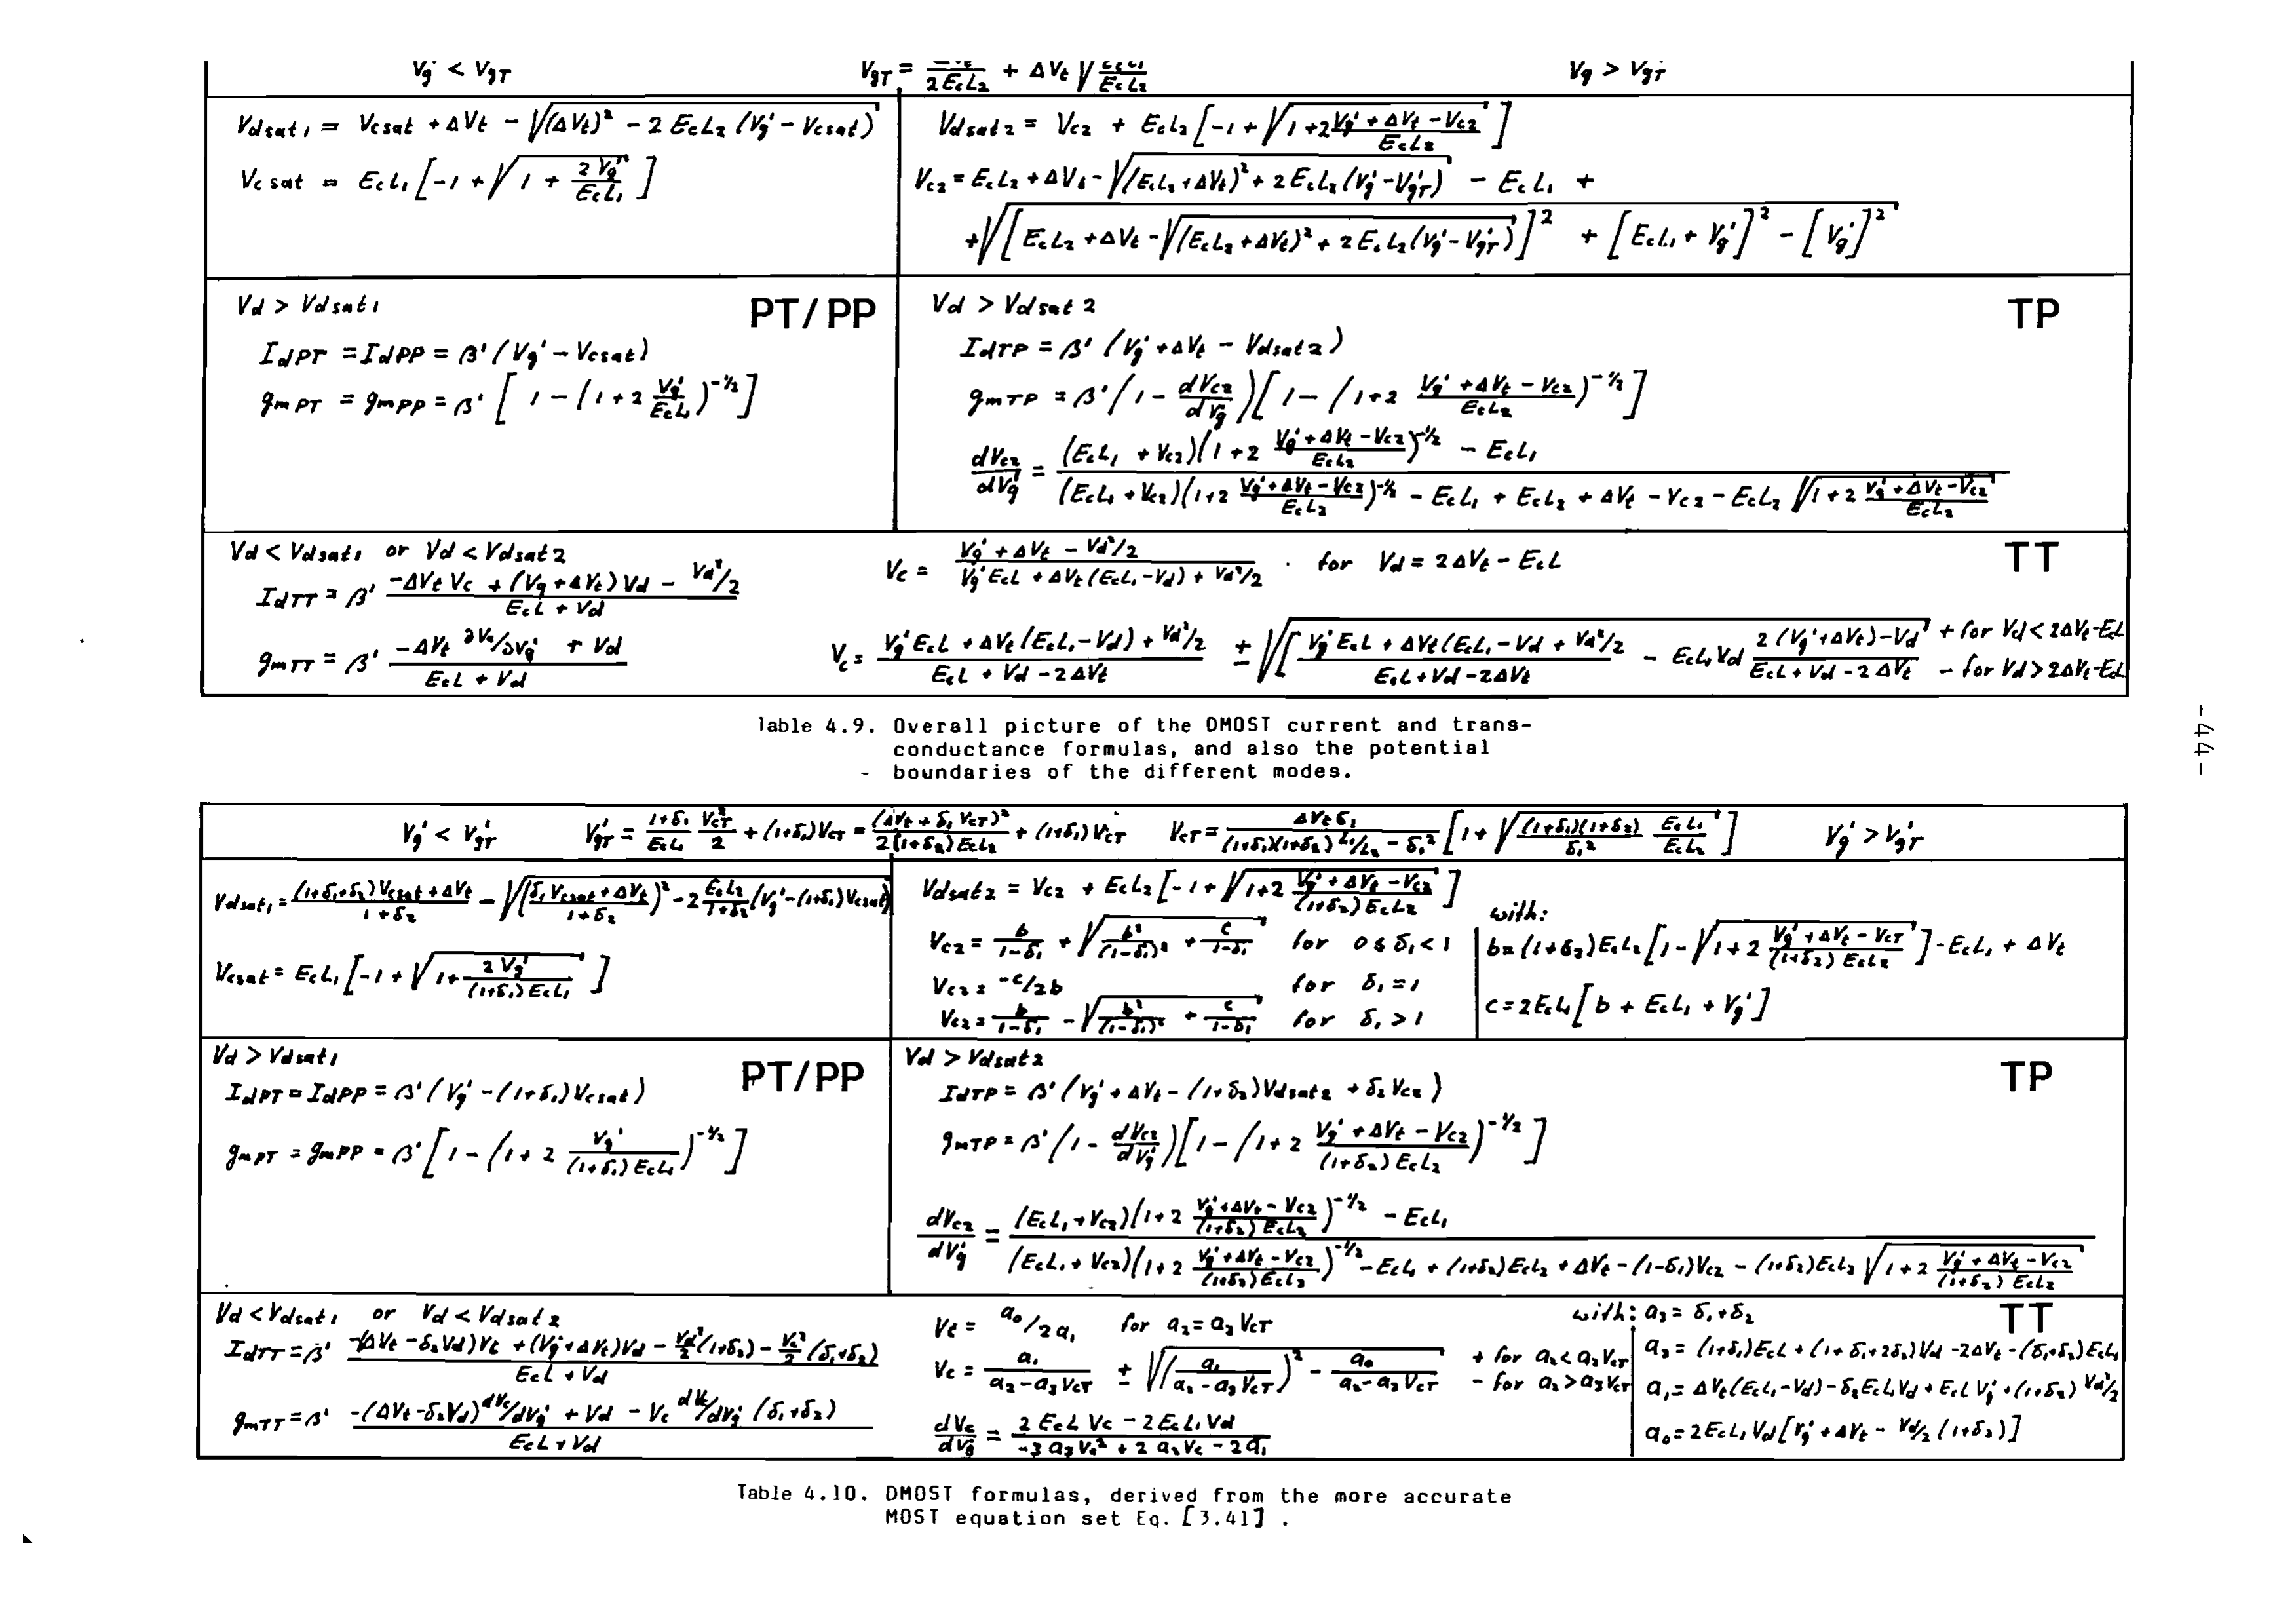 Vg' < VgT    VgT = .../2EcL2 + ΔVt √(EcL1/EcL2)    Vg > VgT
Vdsat1 = Vcsat + ΔVt - √((ΔVt)² - 2 EcL2 (Vg' - Vcsat))
Vcsat = EcL1 [-1 + √(1 + 2Vg'/EcL1)]
Vdsat2 = Vc2 + EcL2 [-1 + √(1 + 2 (Vg' + ΔVt - Vc2)/EcL2)]
Vc2 = EcL2 + ΔVt - √((EcL2 + ΔVt)² + 2EcL2 (Vg' - VgT')) - EcL1 +
+ √([EcL2 + ΔVt - √((EcL2 + ΔVt)² + 2EcL2 (Vg' - VgT'))]² + [EcL1 + Vg']² - [Vg']²)
Vd > Vdsat1    PT/PP
IdPT = IdPP = β' (Vg' - Vcsat)
gmPT = gmPP = β' [1 - (1 + 2 Vg'/EcL1)^-1/2]
Vd > Vdsat2    TP
IdTP = β' (Vg' + ΔVt - Vdsat2)
gmTP = β' (1 - dVc2/dVg') [1 - (1 + 2 (Vg' + ΔVt - Vc2)/EcL2)^-1/2]
dVc2/dVg' = ((EcL1 + Vc2)(1 + 2 (Vg' + ΔVt - Vc2)/EcL2)^-1/2 - EcL1) / ((EcL1 + Vc2)(1 + 2 (Vg' + ΔVt - Vc2)/EcL2)^-1/2 - EcL1 + EcL2 + ΔVt - Vc2 - EcL2 √(1 + 2 (Vg' + ΔVt - Vc2)/EcL2))
Vd < Vdsat1 or Vd < Vdsat2    TT
IdTT = β' (-ΔVt Vc + (Vg + ΔVt) Vd - Vd²/2) / (EcL + Vd)
gmTT = β' (-ΔVt ∂Vc/∂Vg' + Vd) / (EcL + Vd)
Vc = (Vg' + ΔVt - Vd²/2) / (Vg' EcL + ΔVt (EcL1 - Vd) + Vd²/2) . for Vd = 2ΔVt - EcL
Vc = (Vg' EcL + ΔVt (EcL1 - Vd) + Vd²/2) / (EcL + Vd - 2ΔVt) ± √([(Vg' EcL + ΔVt (EcL1 - Vd + Vd²/2) / (EcL + Vd - 2ΔVt) - EcL1 Vd (2 (Vg' + ΔVt) - Vd)/(EcL + Vd - 2ΔVt)) + for Vd < 2ΔVt - EcL
- for Vd > 2ΔVt - EcL
Table 4.9. Overall picture of the DMOST current and trans-
conductance formulas, and also the potential
- boundaries of the different modes.
-44-
Vg' < VgT'    VgT' = (1+δ1)/EcL1 VcT²/2 + (1+δ1)VcT = (ΔVt + δ1 VcT)²/(2(1+δ2)EcL2) + (1+δ1)VcT    VcT = ΔVt δ1/((1+δ1)(1+δ2) L1/L2 - δ1²) [1 + √((1+δ1)(1+δ2)/δ1² EcL1/EcL2)]    Vg' > VgT'
Vdsat1 = ((1+δ1+δ2)Vcsat + ΔVt)/(1+δ2) - √(((δ1 Vcsat + ΔVt)/(1+δ2))² - 2 EcL2/(1+δ2) (Vg' - (1+δ1)Vcsat))
Vcsat = EcL1 [-1 + √(1 + 2Vg'/((1+δ1) EcL1))]
Vdsat2 = Vc2 + EcL2 [-1 + √(1 + 2 (Vg' + ΔVt - Vc2)/((1+δ2) EcL2))]
Vc2 = b/(1-δ1) + √(b²/(1-δ1)² + c/(1-δ1)) for 0 ≤ δ1 < 1
Vc2 = -c/2b for δ1 = 1
Vc2 = b/(1-δ1) - √(b²/(1-δ1)² + c/(1-δ1)) for δ1 > 1
with:
b = (1+δ2)EcL2 [1 - √(1 + 2 (Vg' + ΔVt - VcT)/((1+δ2) EcL2))] - EcL1 + ΔVt
c = 2EcL1 [b + EcL1 + Vg']
Vd > Vdsat1    PT/PP
IdPT = IdPP = β' (Vg' - (1+δ1)Vcsat)
gmPT = gmPP = β' [1 - (1 + 2 Vg'/((1+δ1) EcL1))^-1/2]
Vd > Vdsat2    TP
IdTP = β' (Vg' + ΔVt - (1+δ2)Vdsat2 + δ2 Vc2)
gmTP = β' (1 - dVc2/dVg') [1 - (1 + 2 (Vg' + ΔVt - Vc2)/((1+δ2) EcL2))^-1/2]
dVc2/dVg' = ((EcL1 + Vc2)(1 + 2 (Vg' + ΔVt - Vc2)/((1+δ2) EcL2))^-1/2 - EcL1) / ((EcL1 + Vc2)(1 + 2 (Vg' + ΔVt - Vc2)/((1+δ2) EcL2))^-1/2 - EcL1 + (1+δ2)EcL2 + ΔVt - (1-δ1)Vc2 - (1+δ2)EcL2 √(1 + 2 (Vg' + ΔVt - Vc2)/((1+δ2) EcL2)))
Vd < Vdsat1 or Vd < Vdsat2    TT
IdTT = β' (-(ΔVt - δ2Vd)Vt + (Vg' + ΔVt)Vd - Vd²/2 (1+δ2) - Vc²/2 (δ1+δ2)) / (EcL + Vd)
gmTT = β' (-(ΔVt - δ2Vd) dVc/dVg' + Vd - Vc dVc/dVg' (δ1+δ2)) / (EcL + Vd)
Vt = a0/2a1 for a2 = a3 VcT
Vc = a1/(a2 - a3 VcT) ± √((a1/(a2 - a3 VcT))² - a0/(a2 - a3 VcT)) + for a2 < a3 VcT
- for a2 > a3 VcT
dVc/dVg' = (2 EcL Vc - 2 EcL1 Vd) / (-3 a3 Vc² + 2 a2 Vc - 2a1)
with: a3 = δ1 + δ2
a2 = (1+δ1)EcL + (1 + δ1 + 2δ2)Vd - 2ΔVt - (δ1+δ2)EcL1
a1 = ΔVt(EcL1 - Vd) - δ2EcL1Vd + EcL Vg' + (1+δ2) Vd²/2
a0 = 2EcL1 Vd [Vg' + ΔVt - Vd/2 (1+δ2)]
Table 4.10. DMOST formulas, derived from the more accurate
MOST equation set Eq. [3.41] .